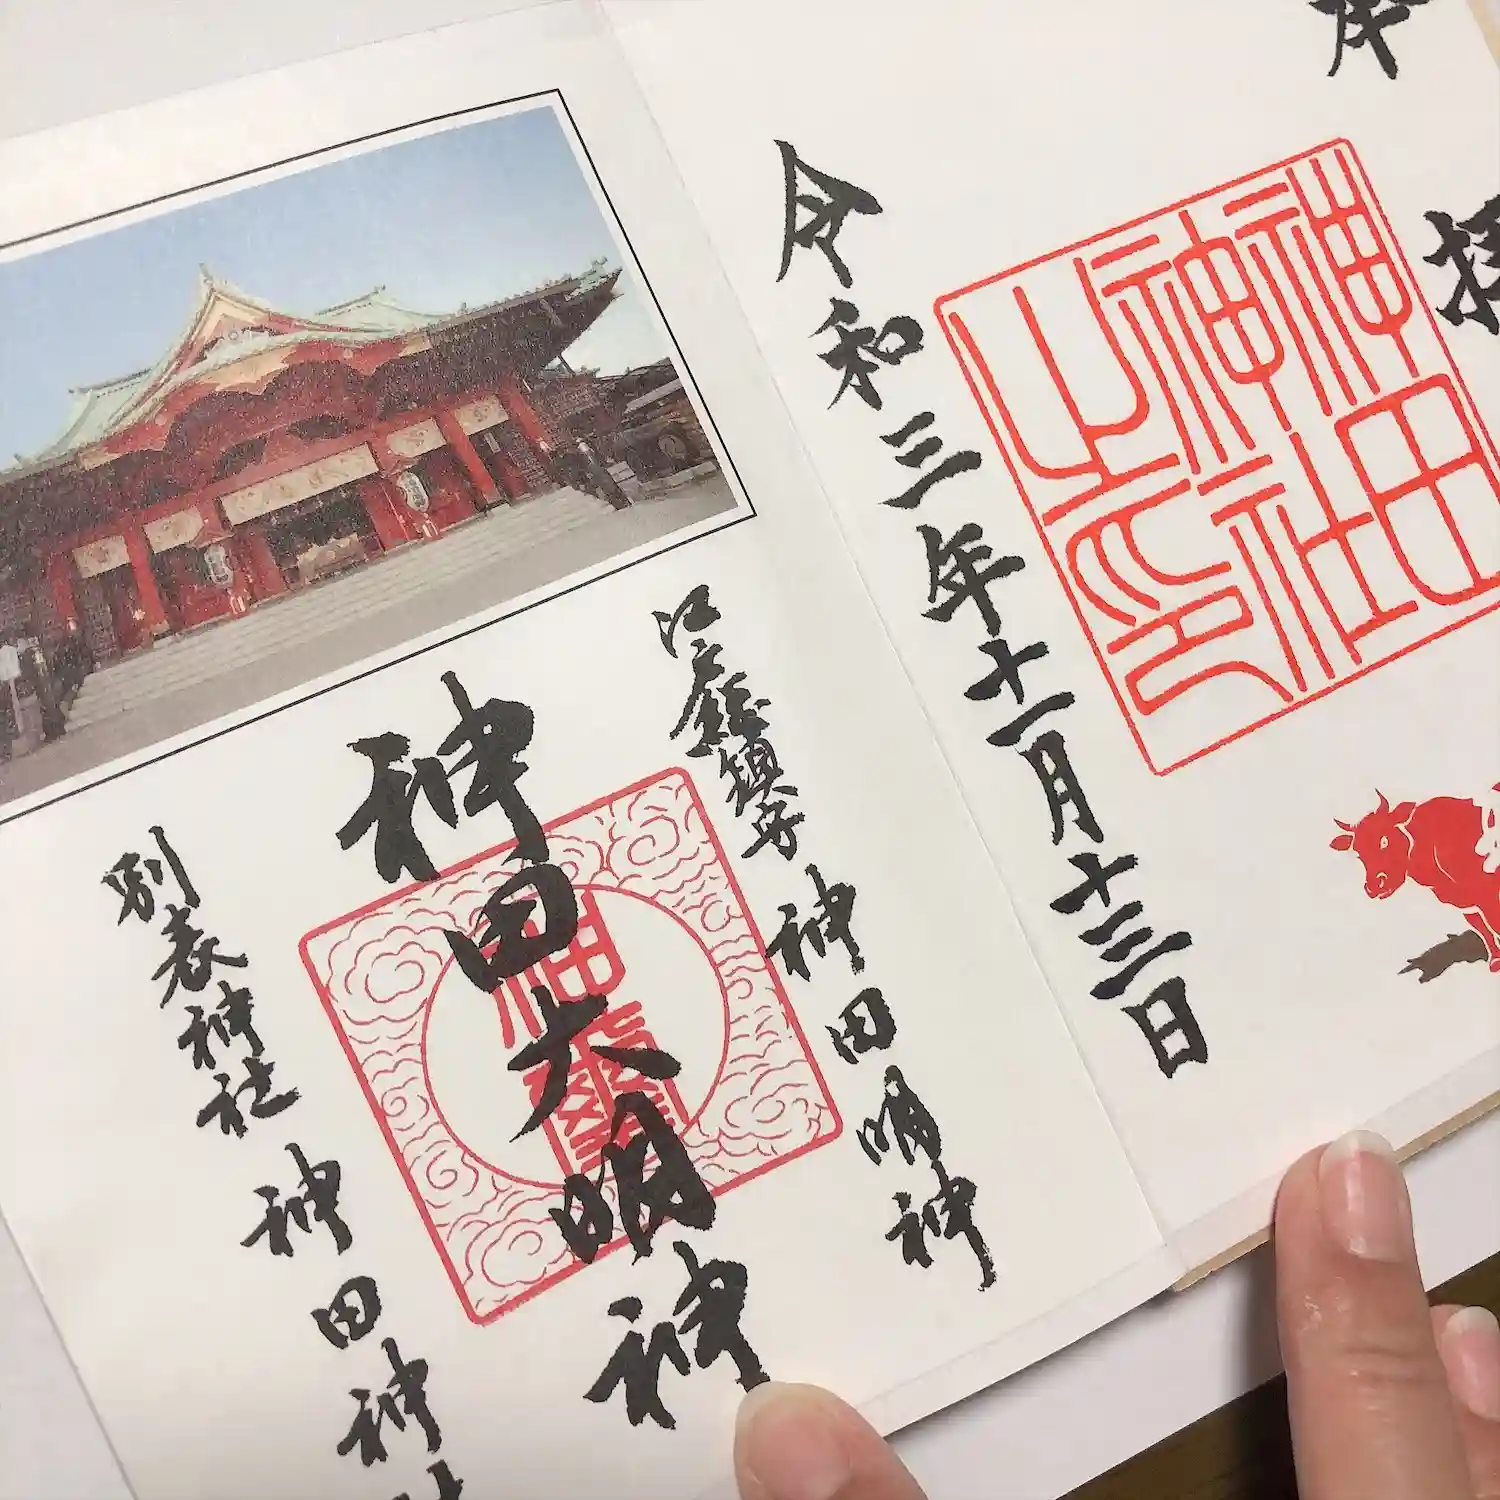 奉拝
神田
神社
之印
令和三年十一月十三日
江戸総鎮守 神田明神
神田大明神
別表神社 神田神社